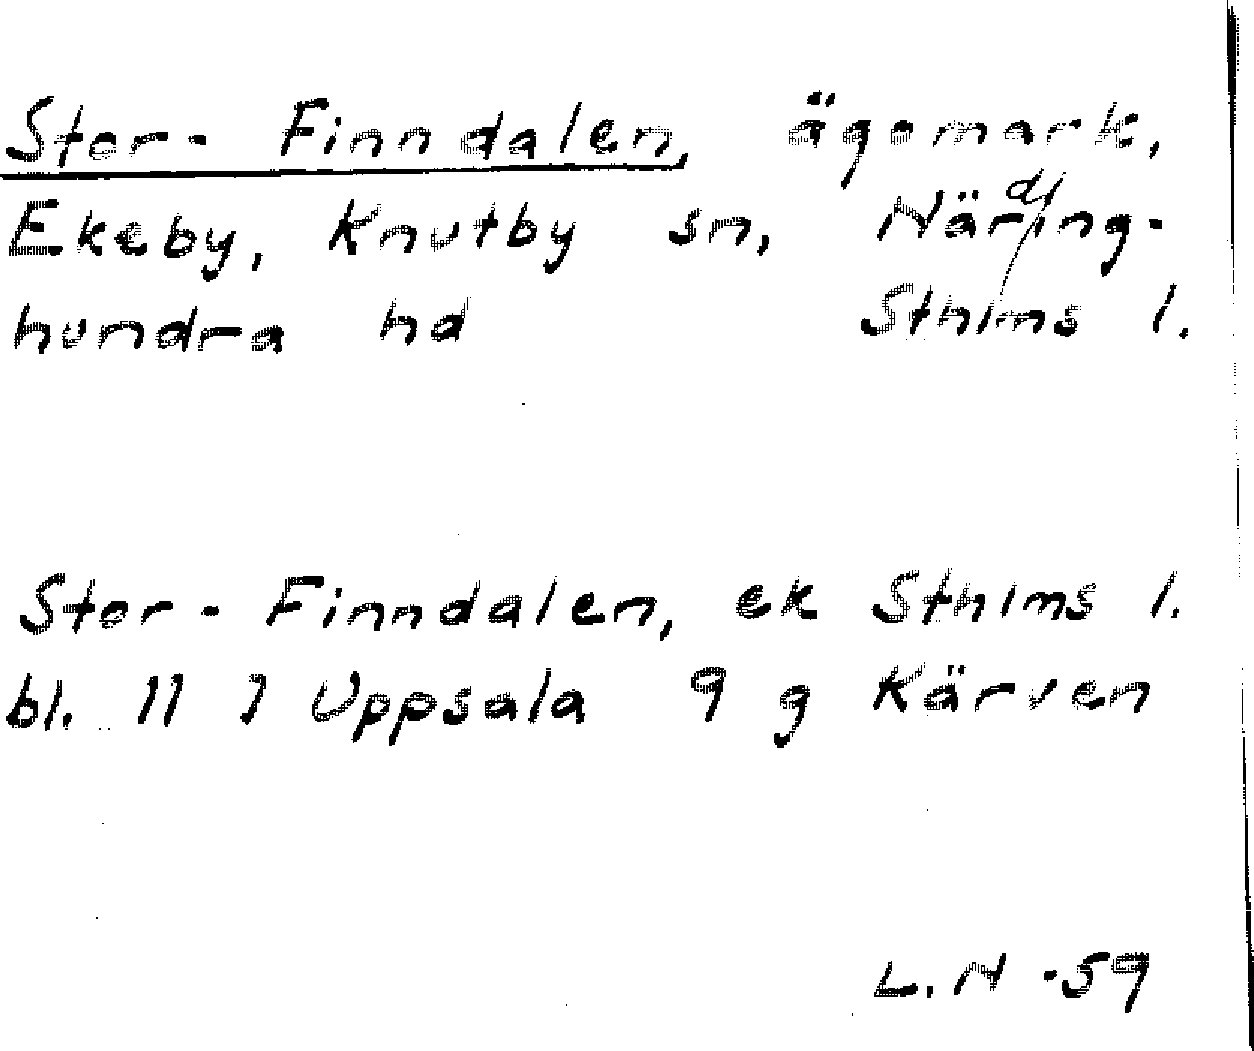 Stor- Finndalen, ägomark,
Ekeby, Knutby sn, Närding-
hundra hd Sthlms l.
Stor- Finndalen, ek Sthlms l.
bl. 11 I Uppsala 9 g Kärven
L. N -59